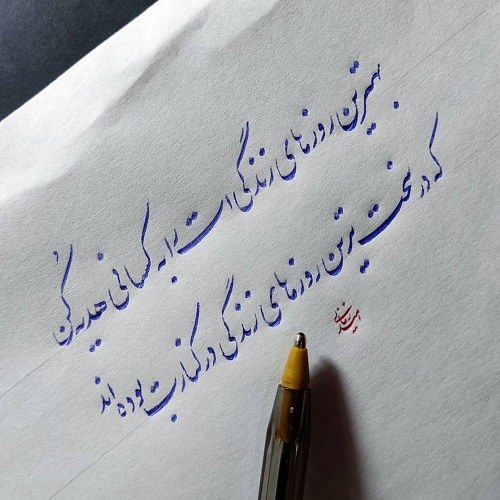 بهترین روزهای زندگی ات را به کسانی هدیه کن
که در سخت ترین روزهای زندگی در کنارت بوده اند